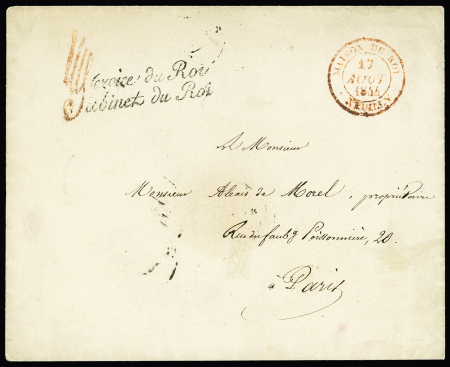 Service du Roi
Cabinet du Roi
MAISON DU ROI
17
AOUT
1844
A Monsieur
Monsieur Alexis de Morel, propriétaire
Rue du faub.g Poissonnière, 20.
à Paris